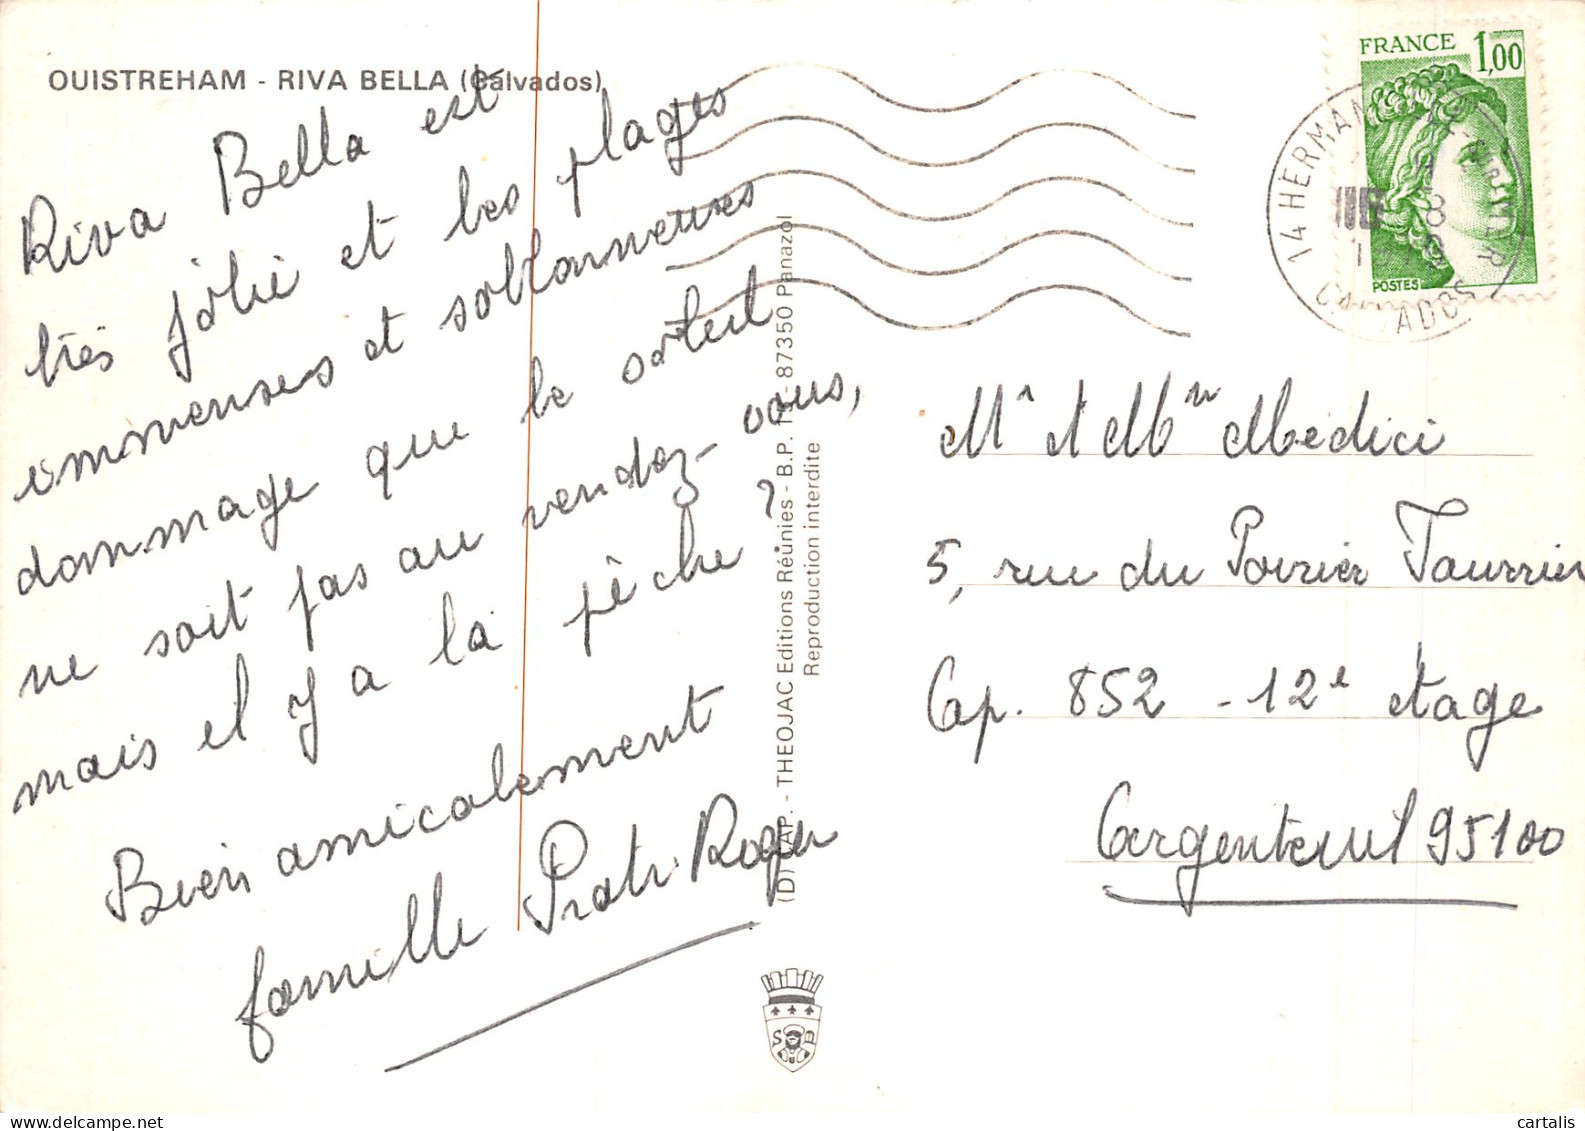 OUISTREHAM - RIVA BELLA (Calvados)
Riva Bella est
très jolie et les plages
immenses et sablonneuses
dommage que le soleil
ne soit pas au rendez-vous,
mais il y a la pêche ?
Bien amicalement
famille Roger
THEOJAC Editions Réunies - B.P. - 87350 Panazol
Reproduction interdite
FRANCE 1,00
POSTES
14 HERMAN
CALVADOS
Mr et Mm Medici
5, rue du Poirier
Cap. 852 - 12e etage
Argenteuil 95100
cartalis